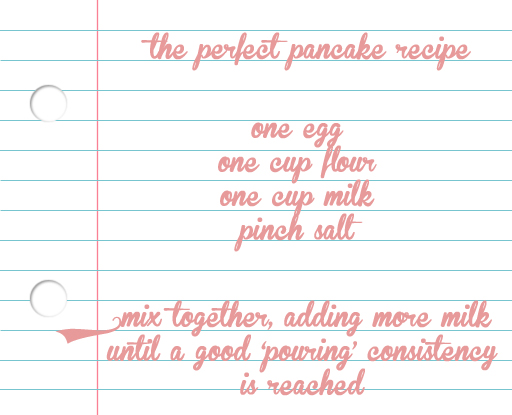 the perfect pancake recipe
one egg
one cup flour
one cup milk
pinch salt
mix together, adding more milk
until a good 'pouring' consistency
is reached